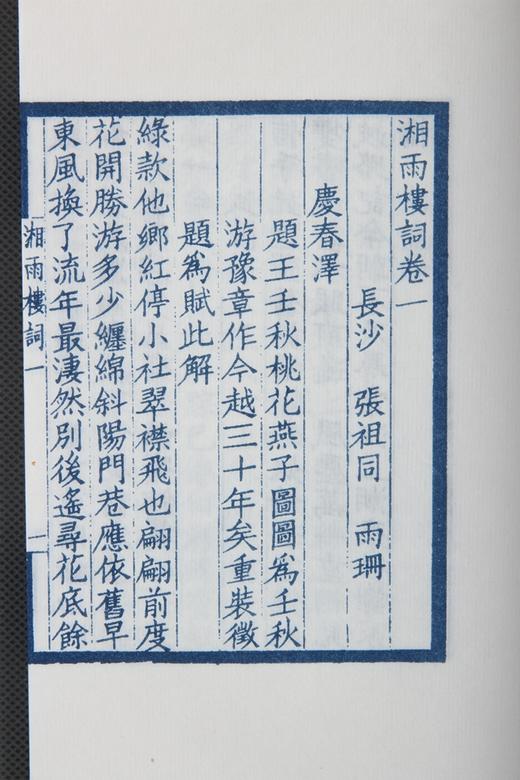 湘雨樓詞卷一
長沙 張祖同 雨珊
慶春澤
題王壬秋桃花燕子圖圖為壬秋
游豫章作今越三十年矣重裝徵
題為賦此解
綠款他鄉紅停小社翠襟飛也翩翩前度
花開勝游多少纏綿斜陽門巷應依舊早
東風換了流年最淒然別後遙尋花底餘
湘雨樓詞一
一